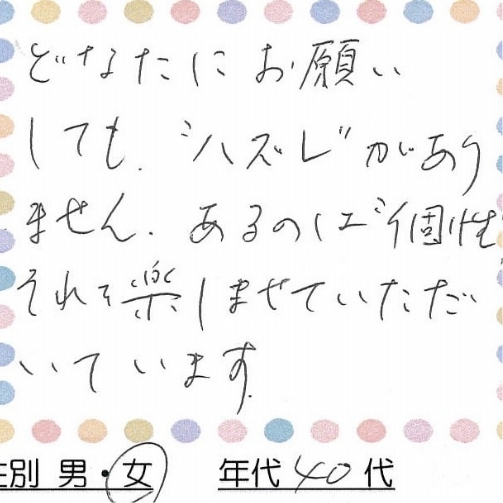 どなたにお願い
しても、"ハズレ"があり
ません。あるのは"個性
それを楽しませていただ
いています。
性別 男・女 年代 40 代